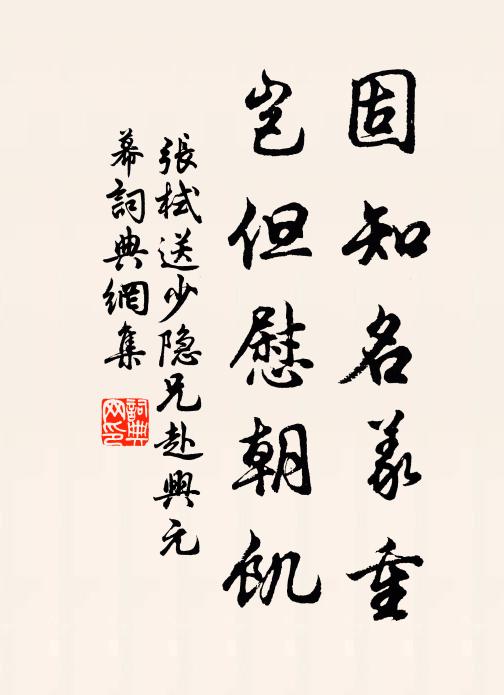 固知名義重
豈但慰朝飢
張栻送少隐兄赴興元
幕詞典網集
詞典
网印